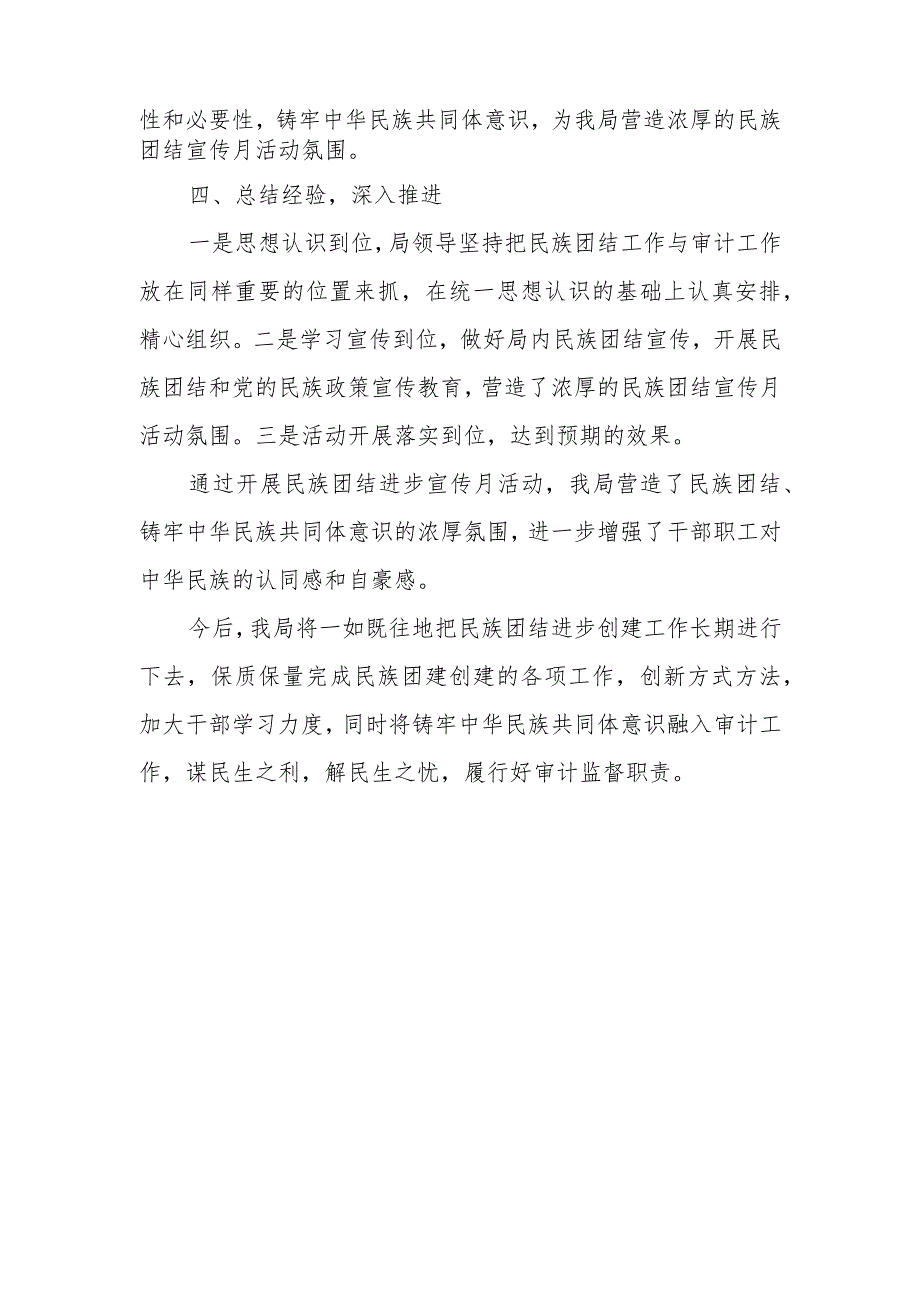 性和必要性，铸牢中华民族共同体意识，为我局营造浓厚的民族
团结宣传月活动氛围。
四、总结经验，深入推进
一是思想认识到位，局领导坚持把民族团结工作与审计工作
放在同样重要的位置来抓，在统一思想认识的基础上认真安排，
精心组织。二是学习宣传到位，做好局内民族团结宣传，开展民
族团结和党的民族政策宣传教育，营造了浓厚的民族团结宣传月
活动氛围。三是活动开展落实到位，达到预期的效果。
通过开展民族团结进步宣传月活动，我局营造了民族团结、
铸牢中华民族共同体意识的浓厚氛围，进一步增强了干部职工对
中华民族的认同感和自豪感。
今后，我局将一如既往地把民族团结进步创建工作长期进行
下去，保质保量完成民族团建创建的各项工作，创新方式方法，
加大干部学习力度，同时将铸牢中华民族共同体意识融入审计工
作，谋民生之利，解民生之忧，履行好审计监督职责。